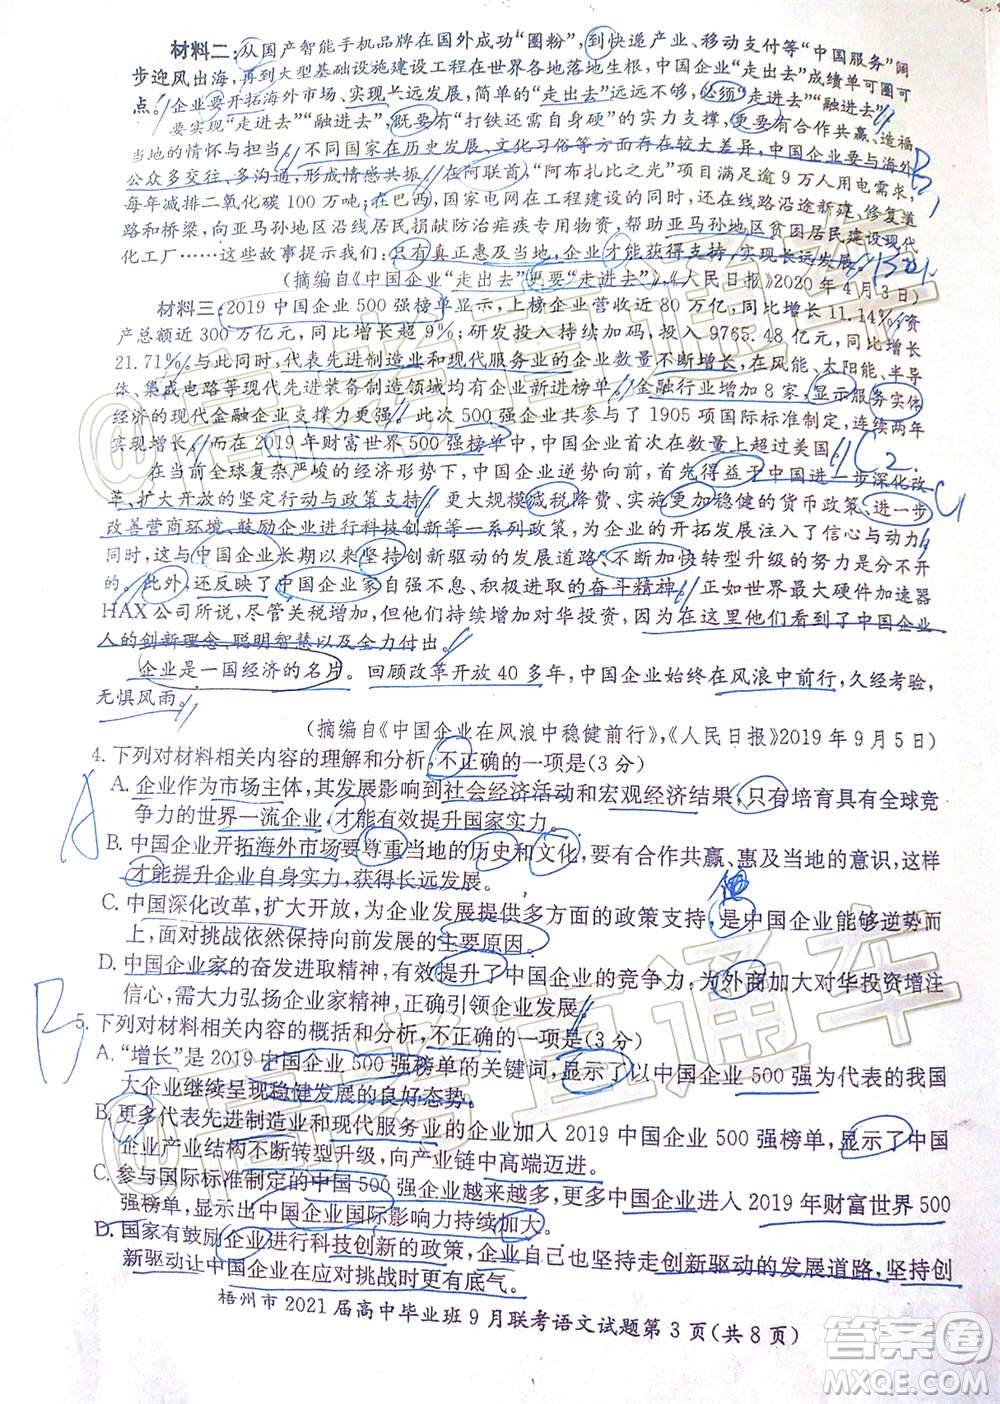 材料二:从国产智能手机品牌在国外成功“圈粉”,到快递产业、移动支付等“中国服务”阔
步迎风出海,再到大型基础设施建设工程在世界各地落地生根,中国企业“走出去”成绩单可圈可
点。企业要开拓海外市场、实现长远发展,简单的“走出去”远远不够,必须“走进去”“融进去”。
要实现“走进去”“融进去”,既要有“打铁还需自身硬”的实力支撑,更要有合作共赢、造福
当地的情怀与担当。不同国家在历史发展、文化习俗等方面存在较大差异,中国企业要与海外
公众多交往、多沟通,形成情感共振。在阿联酋,“阿布扎比之光”项目满足逾 9 万人用电需求,
每年减排二氧化碳 100 万吨;在巴西,国家电网在工程建设的同时,还在线路沿途新建、修复道
路和桥梁,向亚马孙地区沿线居民捐献防治疟疾专用物资,帮助亚马孙地区贫困居民建设现代
化工厂……这些故事提示我们:只有真正惠及当地,企业才能获得支持,实现长远发展。
(摘编自《中国企业“走出去”更要“走进去”》,《人民日报》2020 年 4 月 3 日)
材料三:2019 中国企业 500 强榜单显示,上榜企业营收近 80 万亿,同比增长 11.14%;资
产总额近 300 万亿元,同比增长超 9%;研发投入持续加码,投入 9765.48 亿元,同比增长
21.71%。与此同时,代表先进制造业和现代服务业的企业数量不断增长,在风能、太阳能、半导
体、集成电路等现代先进装备制造领域均有企业新进榜单。金融行业增加 8 家,显示服务实体
经济的现代金融企业支撑力更强。此次 500 强企业共参与了 1905 项国际标准制定,连续两年
实现增长。而在 2019 年财富世界 500 强榜单中,中国企业首次在数量上超过美国。
在当前全球复杂严峻的经济形势下,中国企业逆势向前,首先得益于中国进一步深化改
革、扩大开放的坚定行动与政策支持。更大规模减税降费、实施更加稳健的货币政策、进一步
改善营商环境、鼓励企业进行科技创新等一系列政策,为企业的开拓发展注入了信心与动力。
同时,这与中国企业长期以来坚持创新驱动的发展道路、不断加快转型升级的努力是分不开
的。此外,还反映了中国企业家自强不息、积极进取的奋斗精神。正如世界最大硬件加速器
HAX 公司所说,尽管关税增加,但他们持续增加对华投资,因为在这里他们看到了中国企业
人的创新理念、聪明智慧以及全力付出。
企业是一国经济的名片。回顾改革开放 40 多年,中国企业始终在风浪中前行,久经考验,
无惧风雨。
(摘编自《中国企业在风浪中稳健前行》,《人民日报》2019 年 9 月 5 日)
4. 下列对材料相关内容的理解和分析,不正确的一项是(3 分)
A
A. 企业作为市场主体,其发展影响到社会经济活动和宏观经济结果,只有培育具有全球竞
争力的世界一流企业,才能有效提升国家实力。
B. 中国企业开拓海外市场要尊重当地的历史和文化,要有合作共赢、惠及当地的意识,这样
才能提升企业自身实力,获得长远发展。
C. 中国深化改革,扩大开放,为企业发展提供多方面的政策支持,是中国企业能够逆势而
上,面对挑战依然保持向前发展的主要原因。
D. 中国企业家的奋发进取精神,有效提升了中国企业的竞争力,为外商加大对华投资增注
信心,需大力弘扬企业家精神,正确引领企业发展。
B
5. 下列对材料相关内容的概括和分析,不正确的一项是(3 分)
A. “增长”是 2019 中国企业 500 强榜单的关键词,显示了以中国企业 500 强为代表的我国
大企业继续呈现稳健发展的良好态势。
B. 更多代表先进制造业和现代服务业的企业加入 2019 中国企业 500 强榜单,显示了中国
企业产业结构不断转型升级,向产业链中高端迈进。
C. 参与国际标准制定的中国 500 强企业越来越多,更多中国企业进入 2019 年财富世界 500
强榜单,显示出中国企业国际影响力持续加大。
D. 国家有鼓励企业进行科技创新的政策,企业自己也坚持走创新驱动的发展道路,坚持创
新驱动让中国企业在应对挑战时更有底气。
梧州市 2021 届高中毕业班 9 月联考语文试题第 3 页(共 8 页)
@高考直通车
@高考直通车
答案圈
MXQE.COM